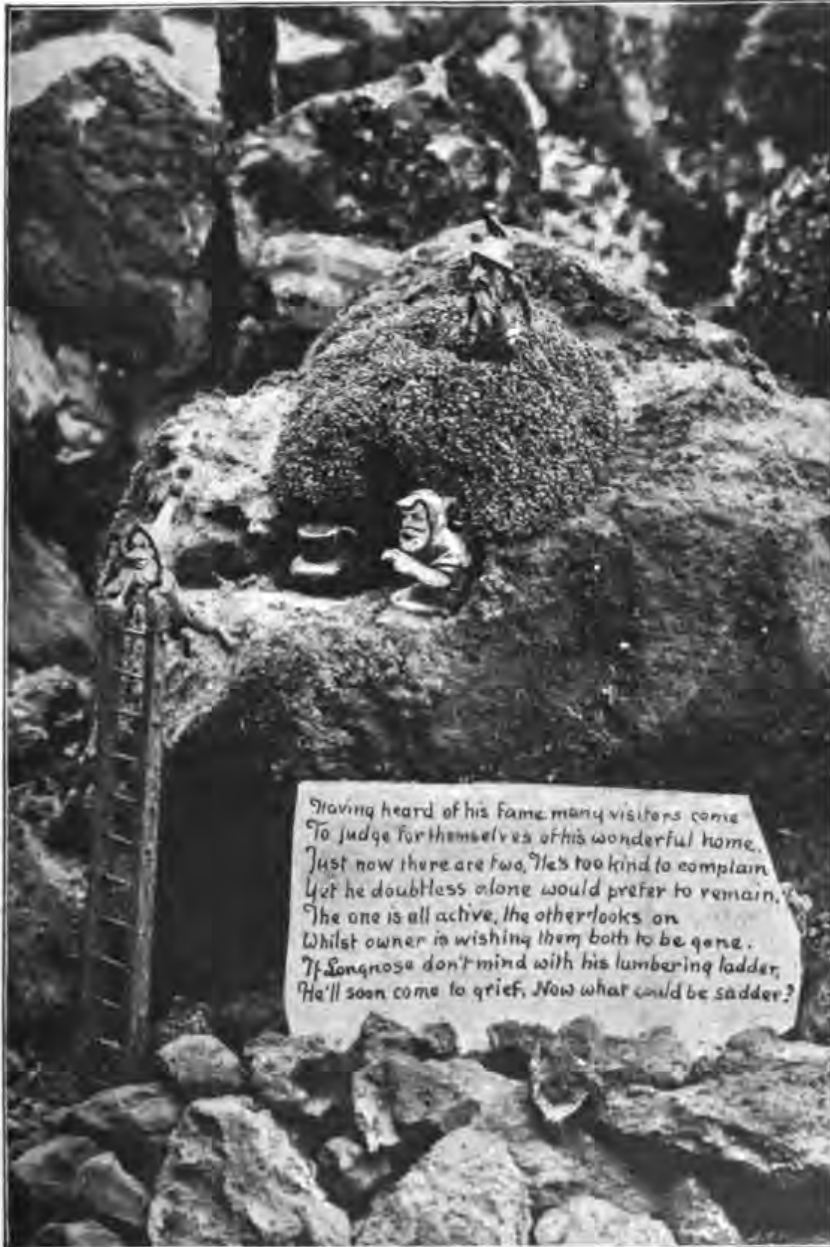 Having heard of his Fame many visitors come
To judge for themselves of his wonderful home.
Just now there are two, He's too kind to complain
Yet he doubtless alone would prefer to remain.
The one is all active, the other looks on
Whilst owner is wishing them both to be gone.
If Longnose don't mind with his lumbering ladder,
He'll soon come to grief, Now what could be sadder?